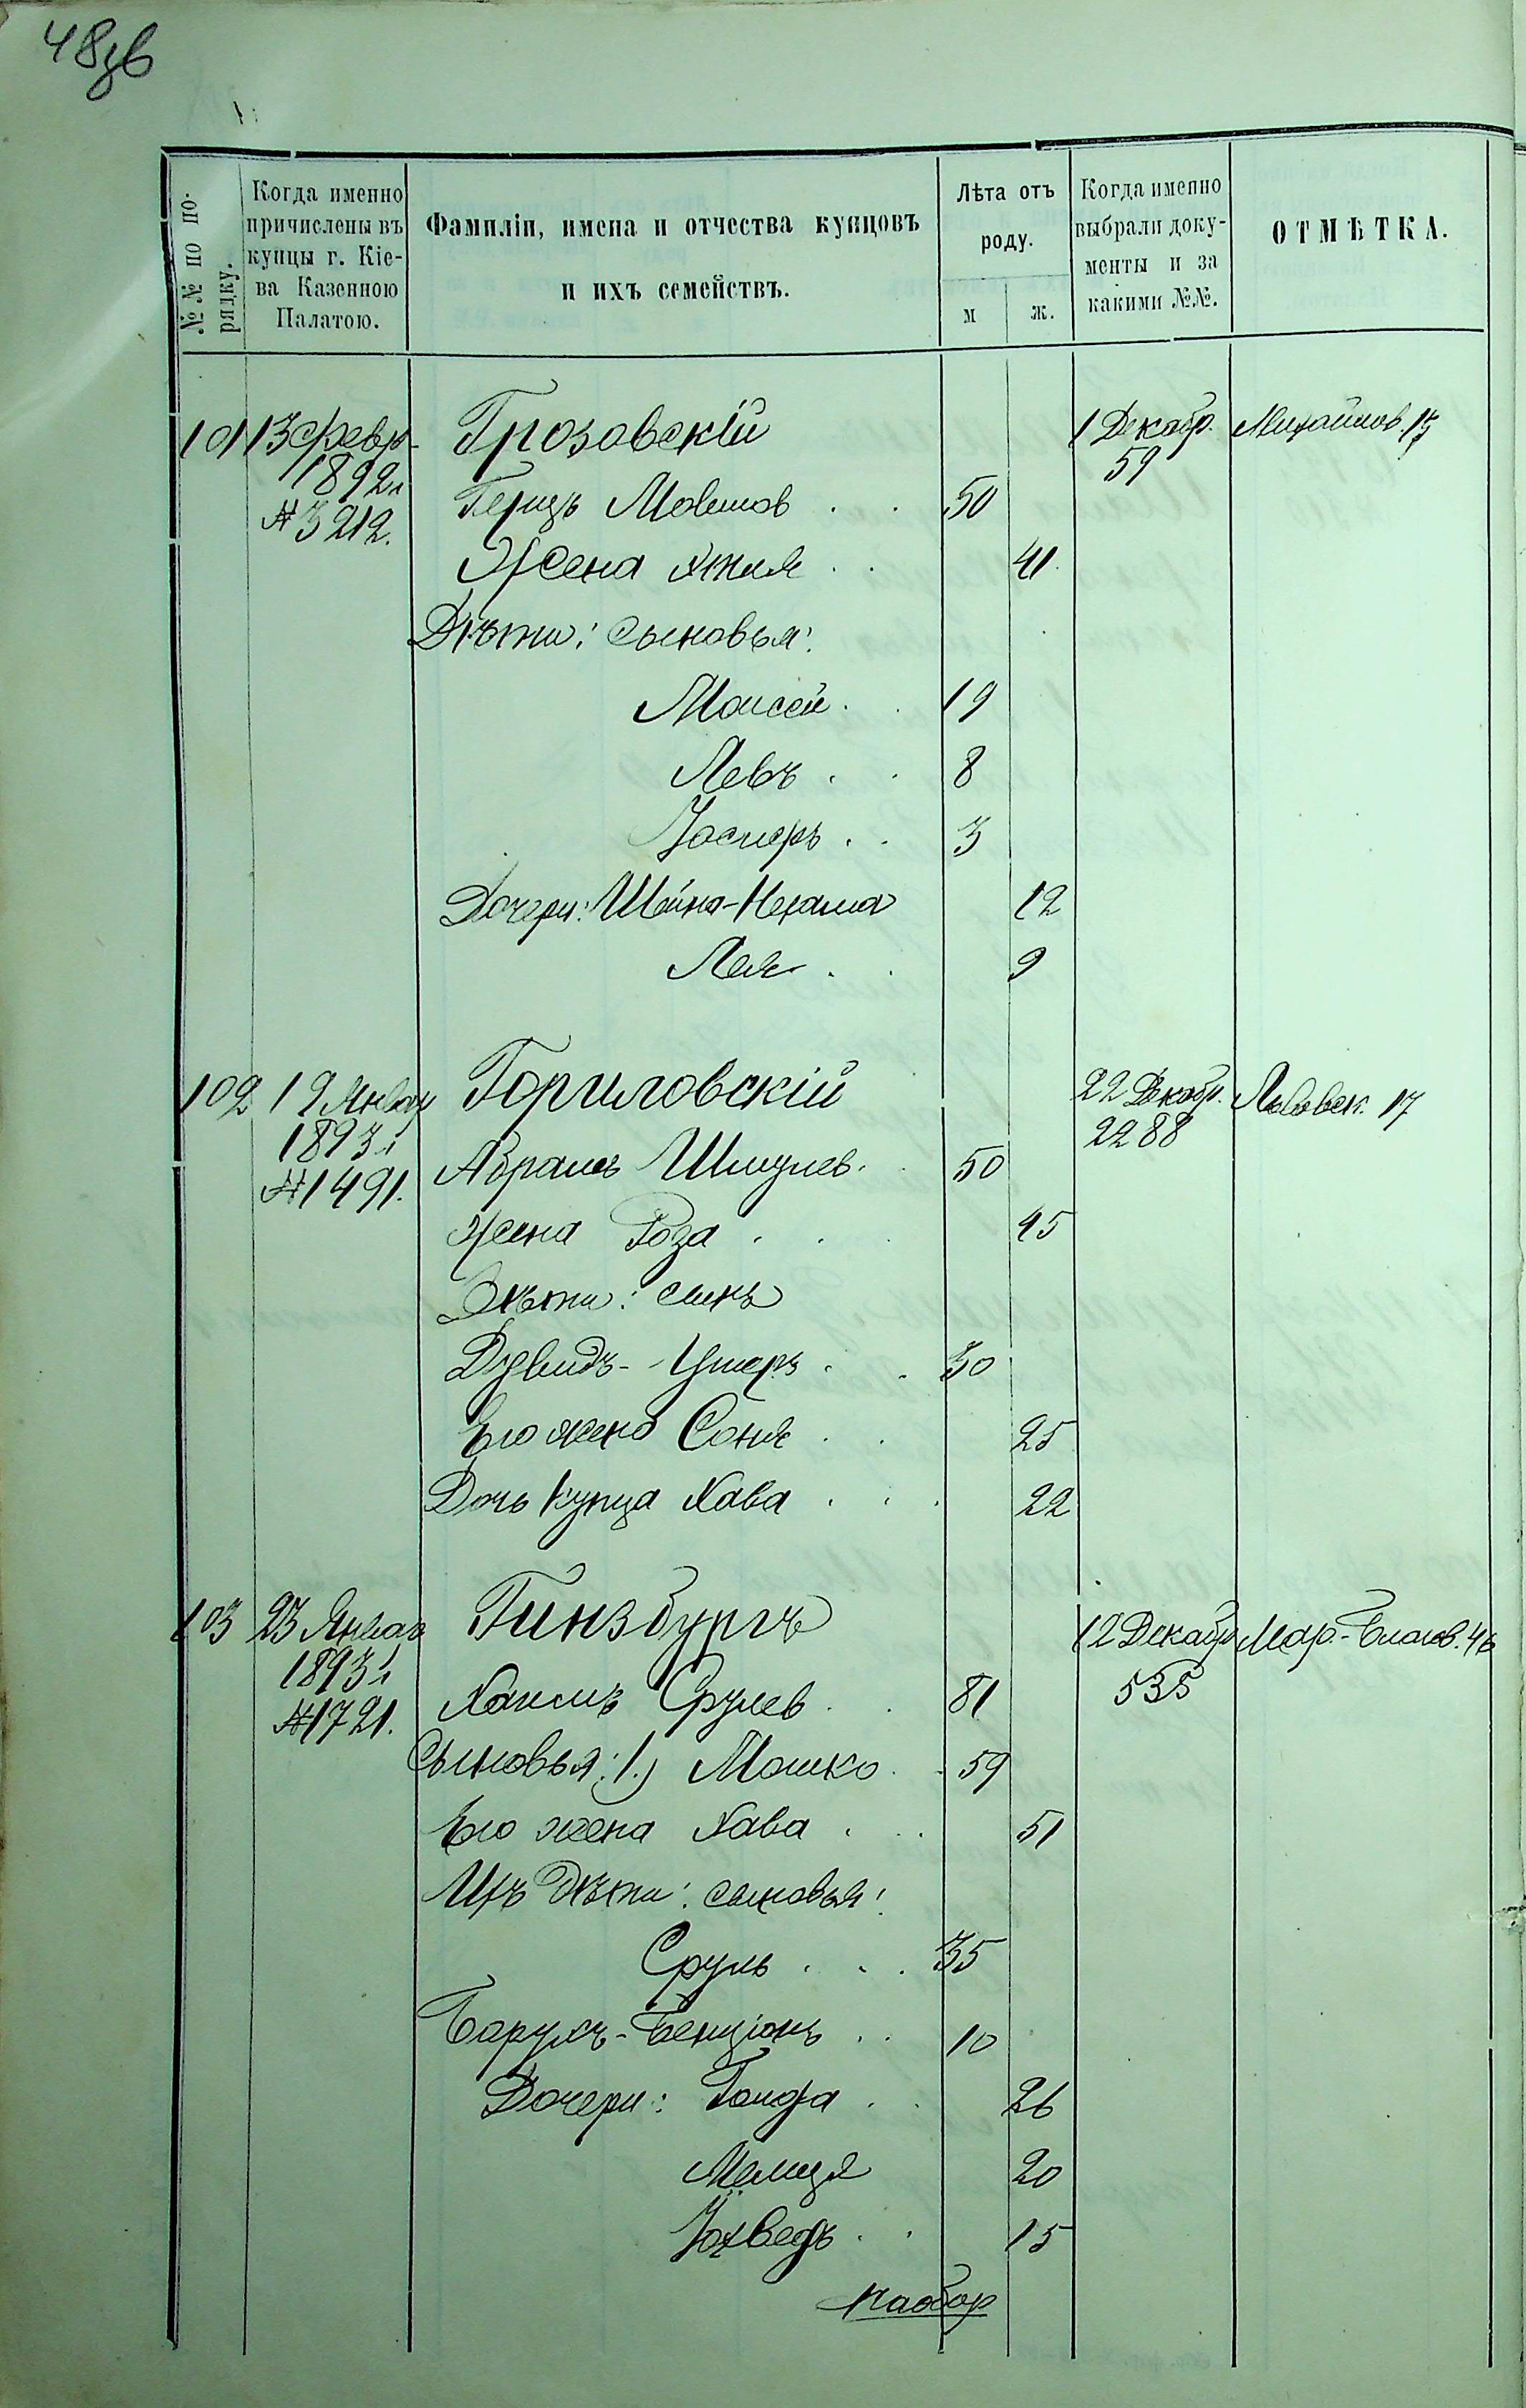 48зв
№№ по по-
рядку.
Когда именно
причислены въ
купцы г. Кіе-
ва Казенною
Палатою.
Фамиліи, имена и отчества купцовъ
и ихъ семействъ.
Лѣта отъ
роду.
м ж.
Когда именно
выбрали доку-
менты и за
какими №№.
ОТМѢТКА.
101 13 Февр. Грозовскій 1 Декабр. Михайлов. 13
1892 г. 59
№ 3212. Герцъ Мовшов 50
Жена 41
Дѣти: сыновья:
Моисей 19
Левъ 8
Іосифъ 3
Дочери: Шейна-Нехама 12
Лея 9
102 19 Январ Гориловскій 22 Декабр. Львовск. 17
1893 г. 2288
№ 1491. Абрамъ Шмулев. 50
Жена Роза 45
Дѣти: сынъ
Дувидъ- 30
Его жена Соня 25
Дочь купца Хава 22
103 23 Января Гинзбургъ 12 Декабр Мар.-Благов. 46
1893 г. 535
№ 1721. Хаимъ Срулев 81
Сыновья: 1.) Мошко 59
Его жена Хава 51
Ихъ дѣти: сыновья:
Сруль 35
Барухъ-Бенціонъ 10
Дочери: 26
20
Юхведъ 15
наобор